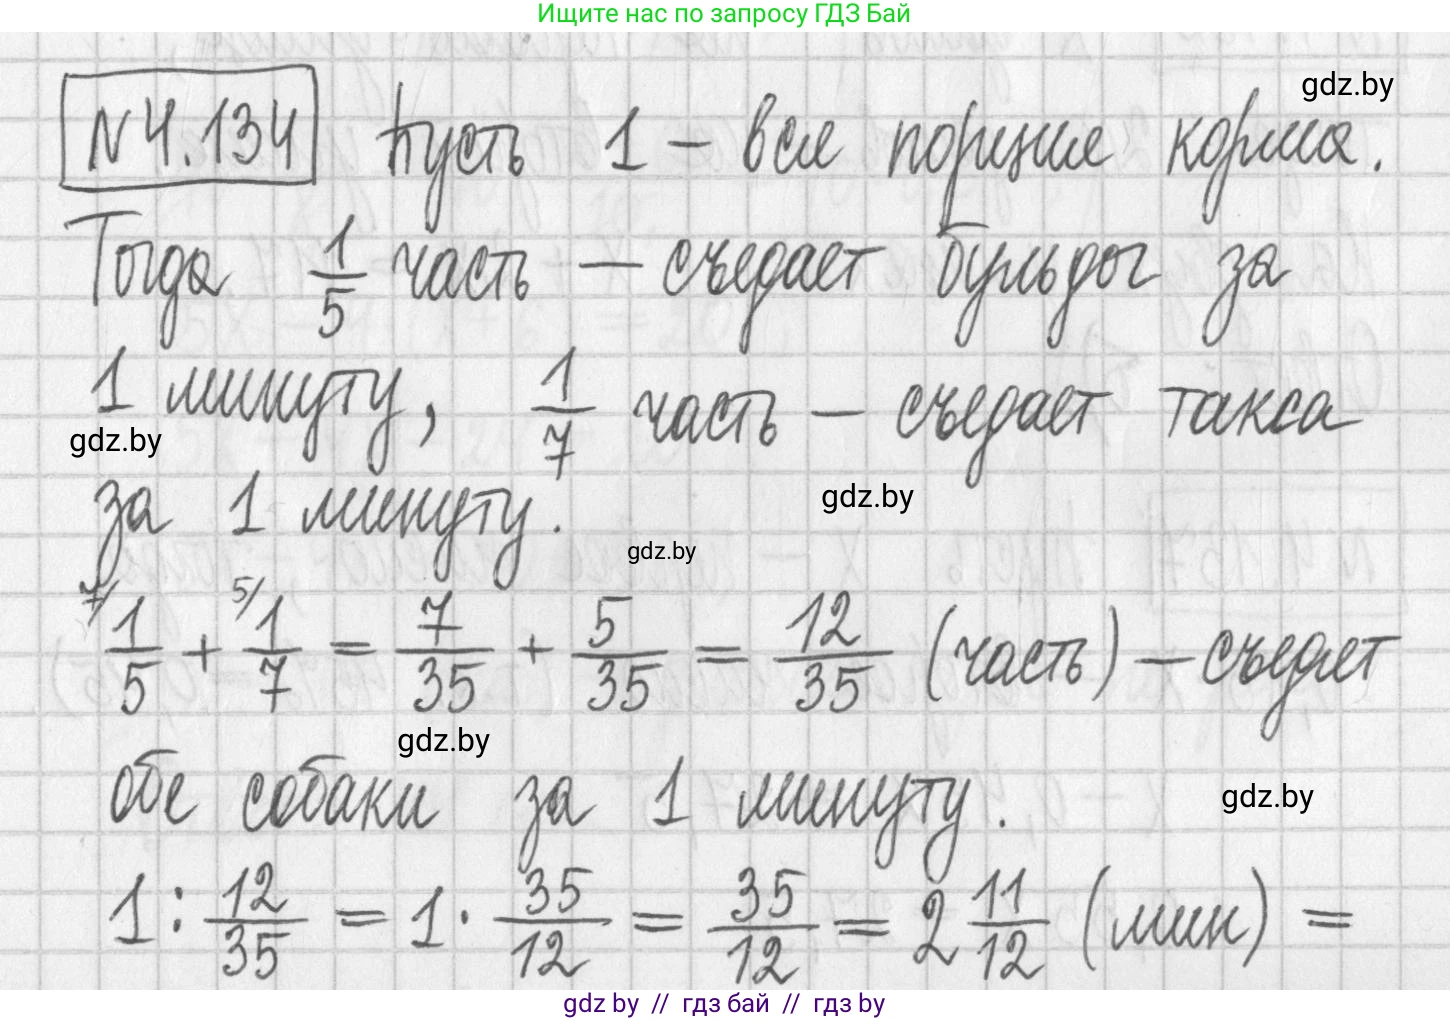 Ищите нас по запросу ГДЗ Бай
gdz.by
N4.134 Пусть 1 - вся порция корма.
Тогда 1/5 часть - съедает бульдог за
1 минуту, 1/7 часть - съедает такса
gdz.by
за 1 минуту.
gdz.by
gdz.by
7/ 1/5 + 5/ 1/7 = 7/35 + 5/35 = 12/35 (часть) - съедят
gdz.by
обе собаки за 1 минуту.
gdz.by
1 : 12/35 = 1 · 35/12 = 35/12 = 2 11/12 (мин) =
gdz by // гдз бай // гдз by